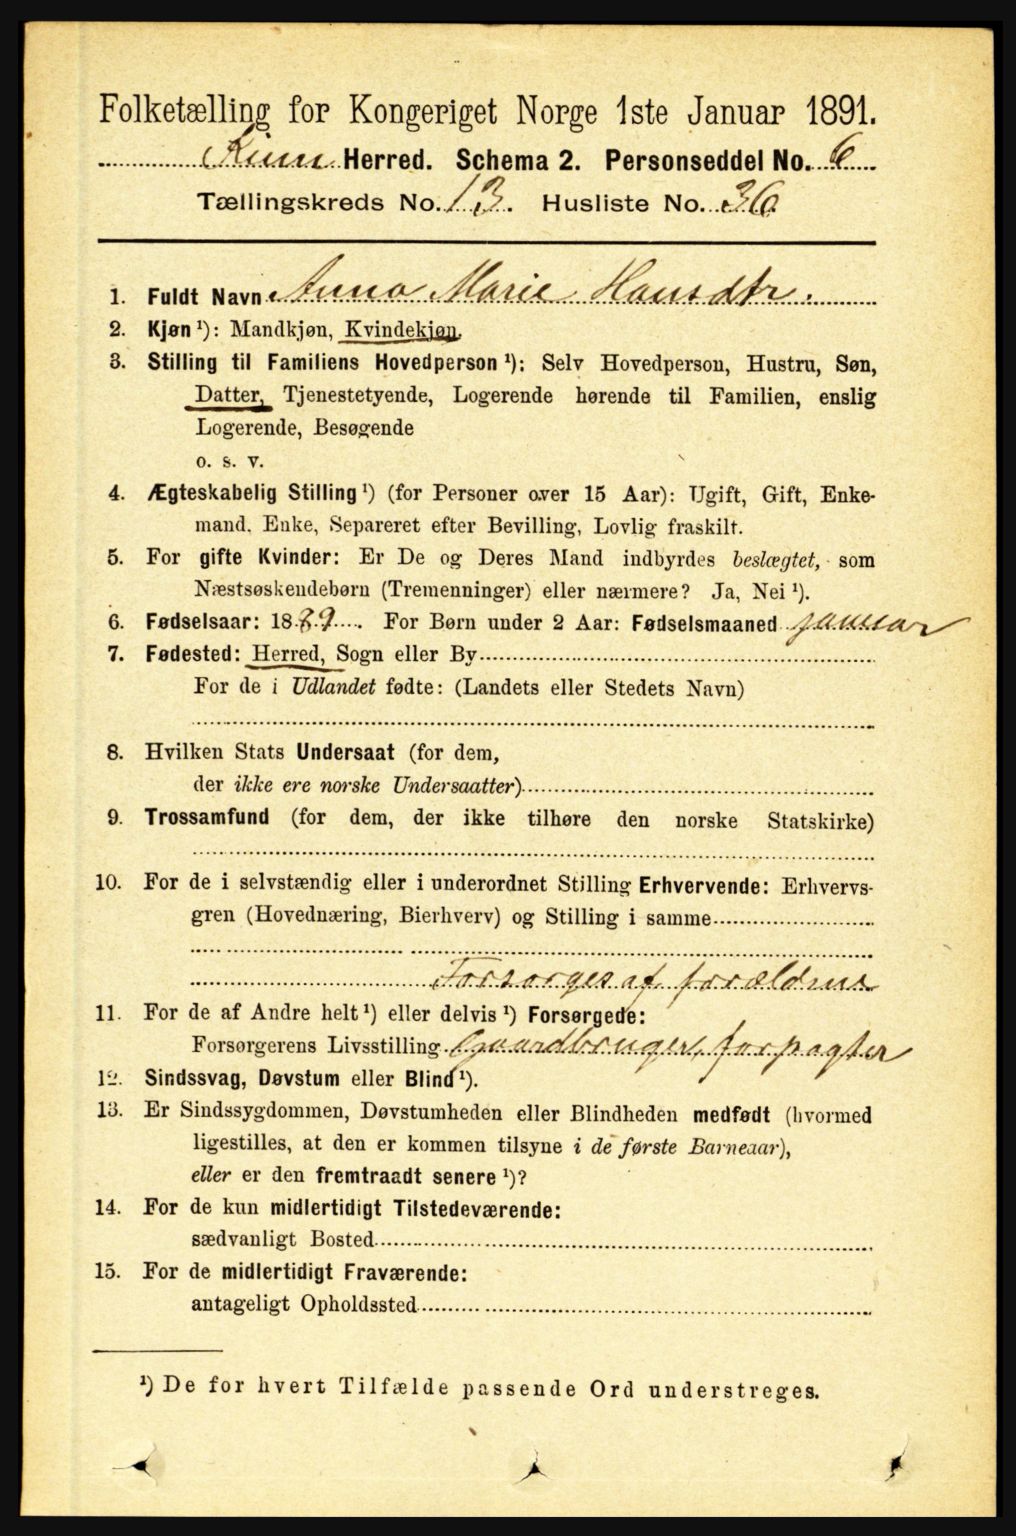 Folketælling for Kongeriget Norge 1ste Januar 1891.
Kinn Herred. Schema 2. Personseddel No. 6
Tællingskreds No. 13. Husliste No. 36.
1. Fuldt Navn Anna Marie Hansdtr.
2. Kjøn ¹): Mandkjøn, Kvindekjøn.
3. Stilling til Familiens Hovedperson ¹): Selv Hovedperson, Hustru, Søn,
Datter, Tjenestetyende, Logerende hørende til Familien, enslig
Logerende, Besøgende
o. s. v.
4. Ægteskabelig Stilling ¹) (for Personer over 15 Aar): Ugift, Gift, Enke-
mand, Enke, Separeret efter Bevilling, Lovlig fraskilt.
5. For gifte Kvinder: Er De og Deres Mand indbyrdes beslægtet, som
Næstsøskendebørn (Tremenninger) eller nærmere? Ja, Nei ¹).
6. Fødselsaar: 1889. For Børn under 2 Aar: Fødselsmaaned januar
7. Fødested: Herred, Sogn eller By
For de i Udlandet fødte: (Landets eller Stedets Navn)
8. Hvilken Stats Undersaat (for dem,
der ikke ere norske Undersaatter)
9. Trossamfund (for dem, der ikke tilhøre den norske Statskirke)
10. For de i selvstændig eller i underordnet Stilling Erhvervende: Erhvervs-
gren (Hovednæring, Bierhverv) og Stilling i samme
Forsørges af forældrene
11. For de af Andre helt ¹) eller delvis ¹) Forsørgede:
Forsørgerens Livsstilling Gaardbruger, forpagter
12. Sindssvag, Døvstum eller Blind ¹).
13. Er Sindssygdommen, Døvstumheden eller Blindheden medfødt (hvormed
ligestilles, at den er kommen tilsyne i de første Barneaar),
eller er den fremtraadt senere ¹)?
14. For de kun midlertidigt Tilstedeværende:
sædvanligt Bosted
15. For de midlertidigt Fraværende:
antageligt Opholdssted
¹) De for hvert Tilfælde passende Ord understreges.